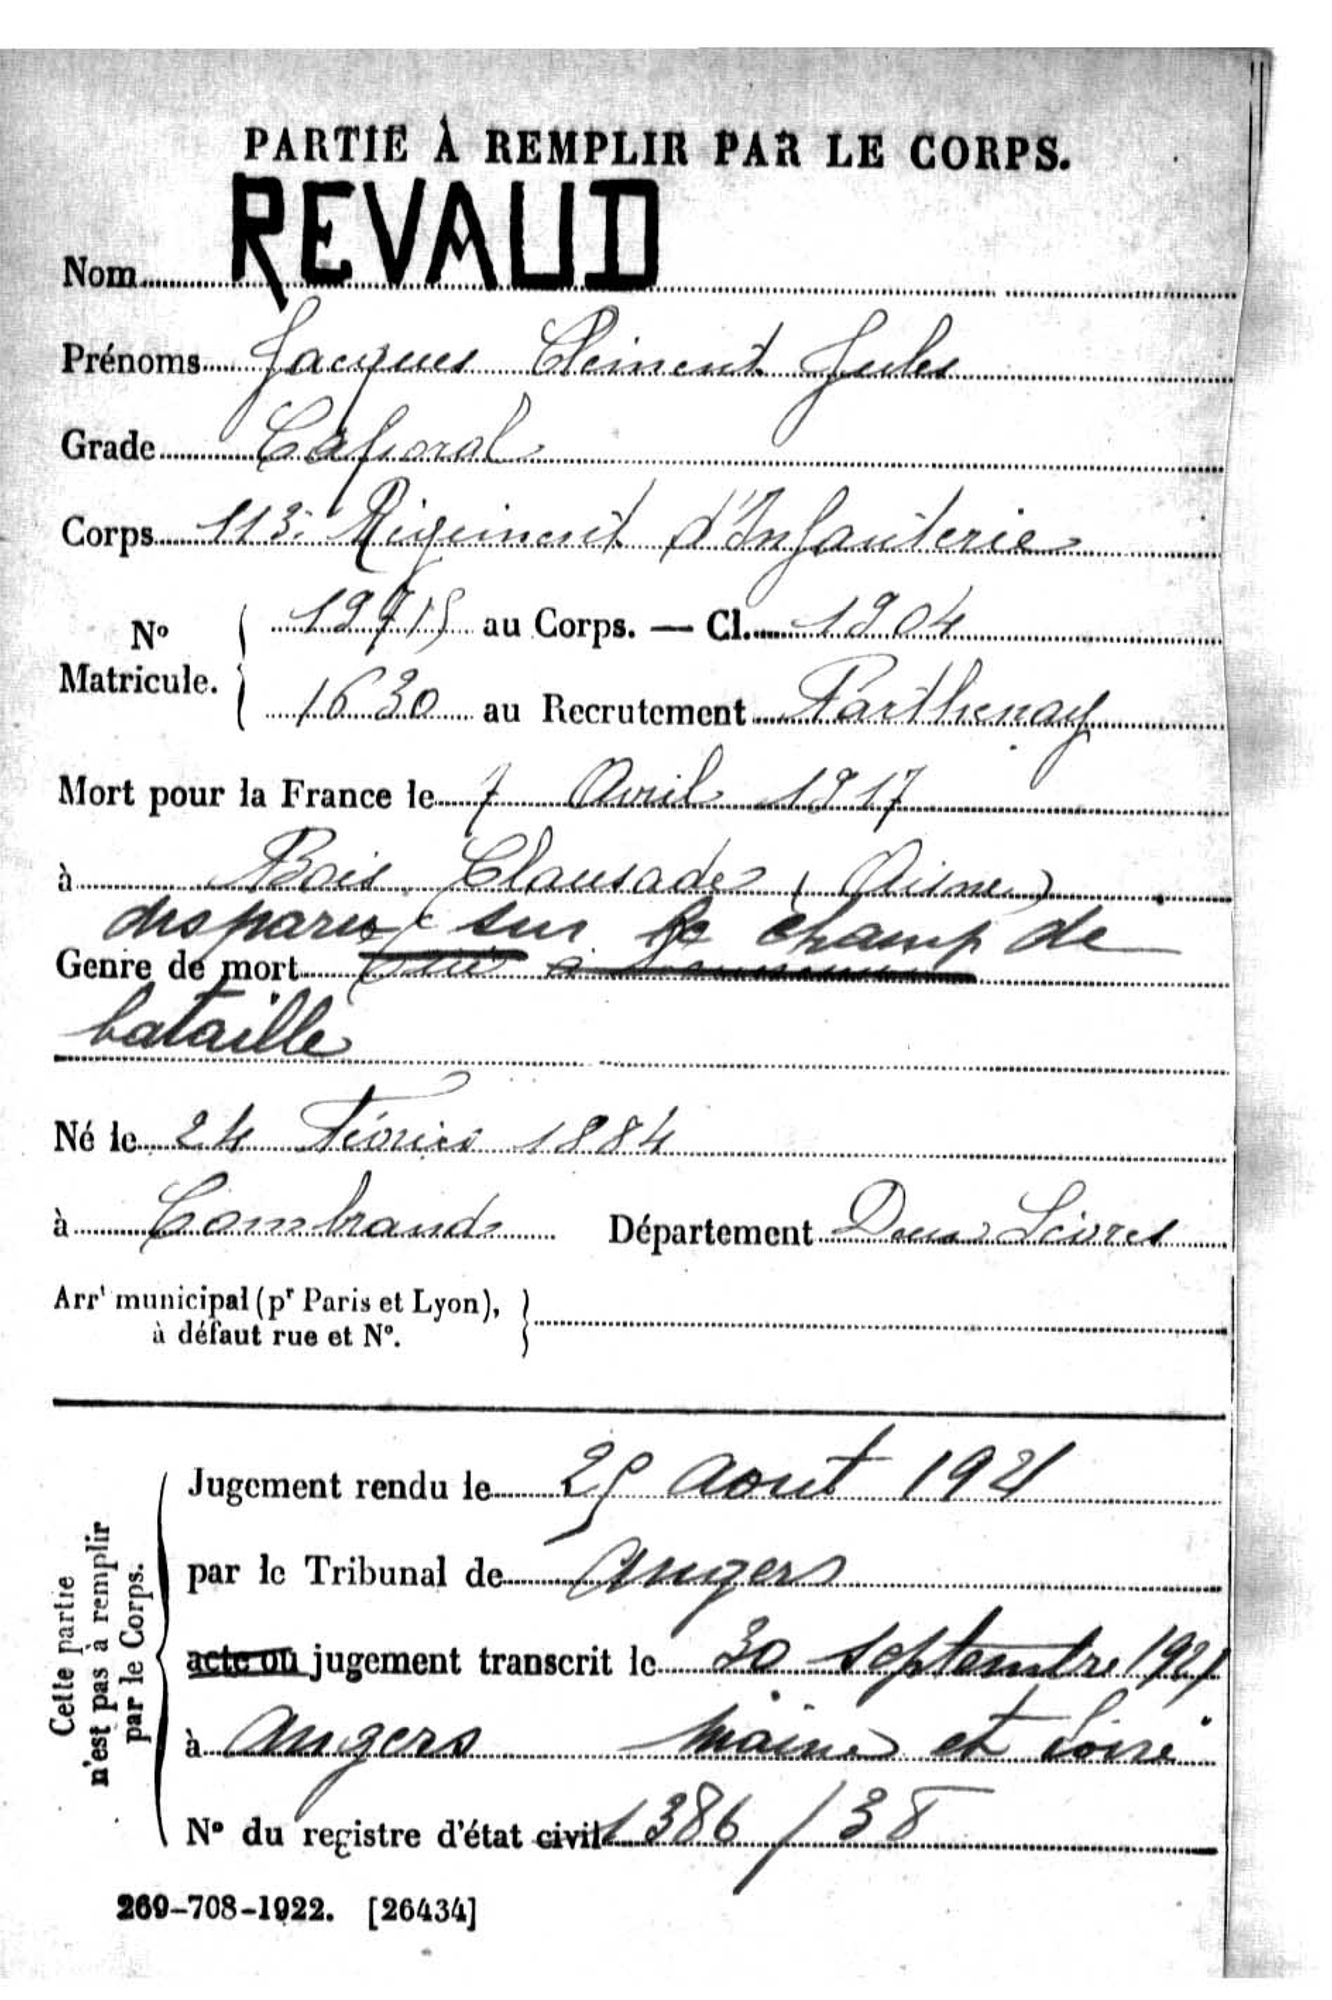 PARTIE À REMPLIR PAR LE CORPS.
Nom REVAUD
Prénoms Jacques Clément Jules
Grade Caporal
Corps 113e Régiment d'Infanterie
N° Matricule. 19715 au Corps. — Cl. 1904
1630 au Recrutement Parthenay
Mort pour la France le 7 Avril 1917
à Bois Clausade (Aisne)
disparu sur le champ de
Genre de mort
bataille
Né le 24 Février 1884
à Combrand Département Deux Sèvres
Arrt municipal (pr Paris et Lyon),
à défaut rue et N°.
Cette partie
n'est pas à remplir
par le Corps.
Jugement rendu le 25 Aout 1921
par le Tribunal de Angers
acte ou jugement transcrit le 30 septembre 1921
à Angers Maine et Loire
N° du registre d'état civil 1386/38
269-708-1922. [26434]